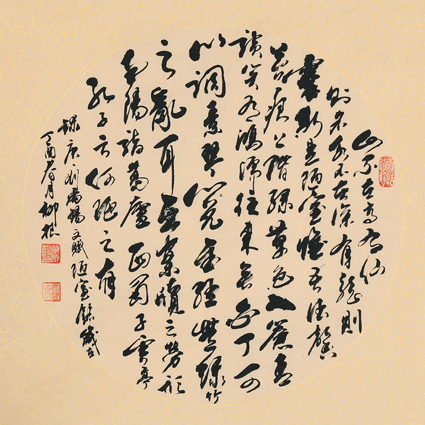 山不在高有仙
则名水不在深有龍则
靈斯是陋室惟吾德馨
苔痕上階绿草色入簾青
谈笑有鸿儒往来无白丁可
以调素琴阅金经無丝竹
之亂耳无案牍之劳形
南陽諸葛廬西蜀子雲亭
孔子云何陋之有
錄唐刘禹锡文赋陋室銘
丁酉春月柳根